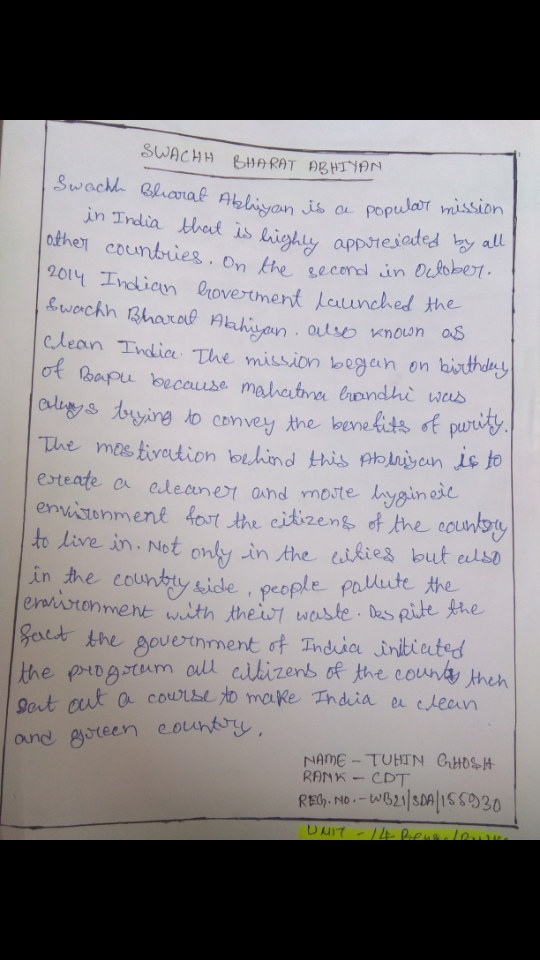 SWACHH BHARAT ABHIYAN
Swachh Bharat Abhiyan is a popular mission
in India that is highly appresiated by all
other countries. On the second in October.
2014 Indian Goverment launched the
Swachh Bharat Abhiyan. also known as
Clean India. The mission began on birthday
of Bapu because mahatma Gandhi was
always trying to convey the benefits of purity.
The mostivation behind this Abhiyan is to
create a cleaner and more hygineic
environment for the citizens of the country
to live in. Not only in the cities but also
in the country side, people pollute the
environment with their waste. Despite the
fact the government of India initiated
the program all citizens of the country then
sat out a course to make India a clean
and green country.
NAME - TUHIN GHOSH
RANK - CDT
REG. NO. - WB21/SDA/155930
UNIT - 14